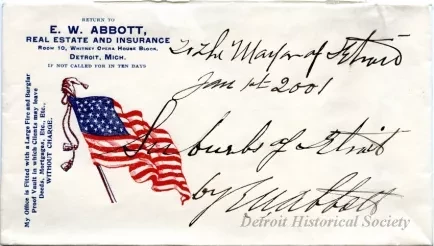 RETURN TO
E. W. ABBOTT,
REAL ESTATE AND INSURANCE
ROOM 10, WHITNEY OPERA HOUSE BLOCK,
DETROIT, MICH.
IF NOT CALLED FOR IN TEN DAYS
My Office is Fitted with a Large Fire and Burglar
Proof Vault in which Clients may leave
Deeds, Mortgages, Etc., Etc.,
WITHOUT CHARGE.
To the Mayor of Detroit
Jan 1st 2001
Suburbs of Detroit
by E W Abbott
Detroit Historical Society